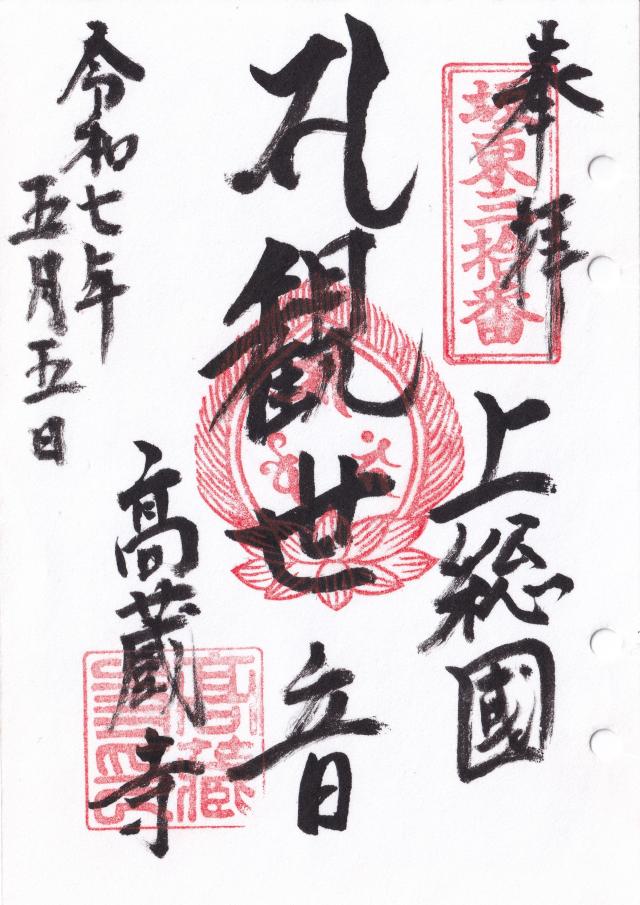 奉拝
坂東三拾番
上総國
観世音
高蔵寺
令和七年
五月五日